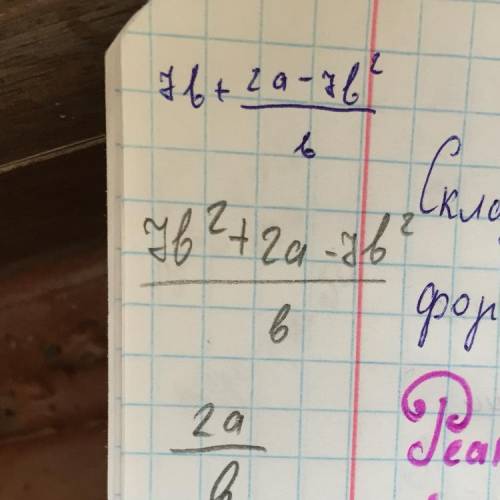 7b + (2a - 7b²)/b
(7b² + 2a - 7b²)/b
2a/b
Скла
фор
Реак